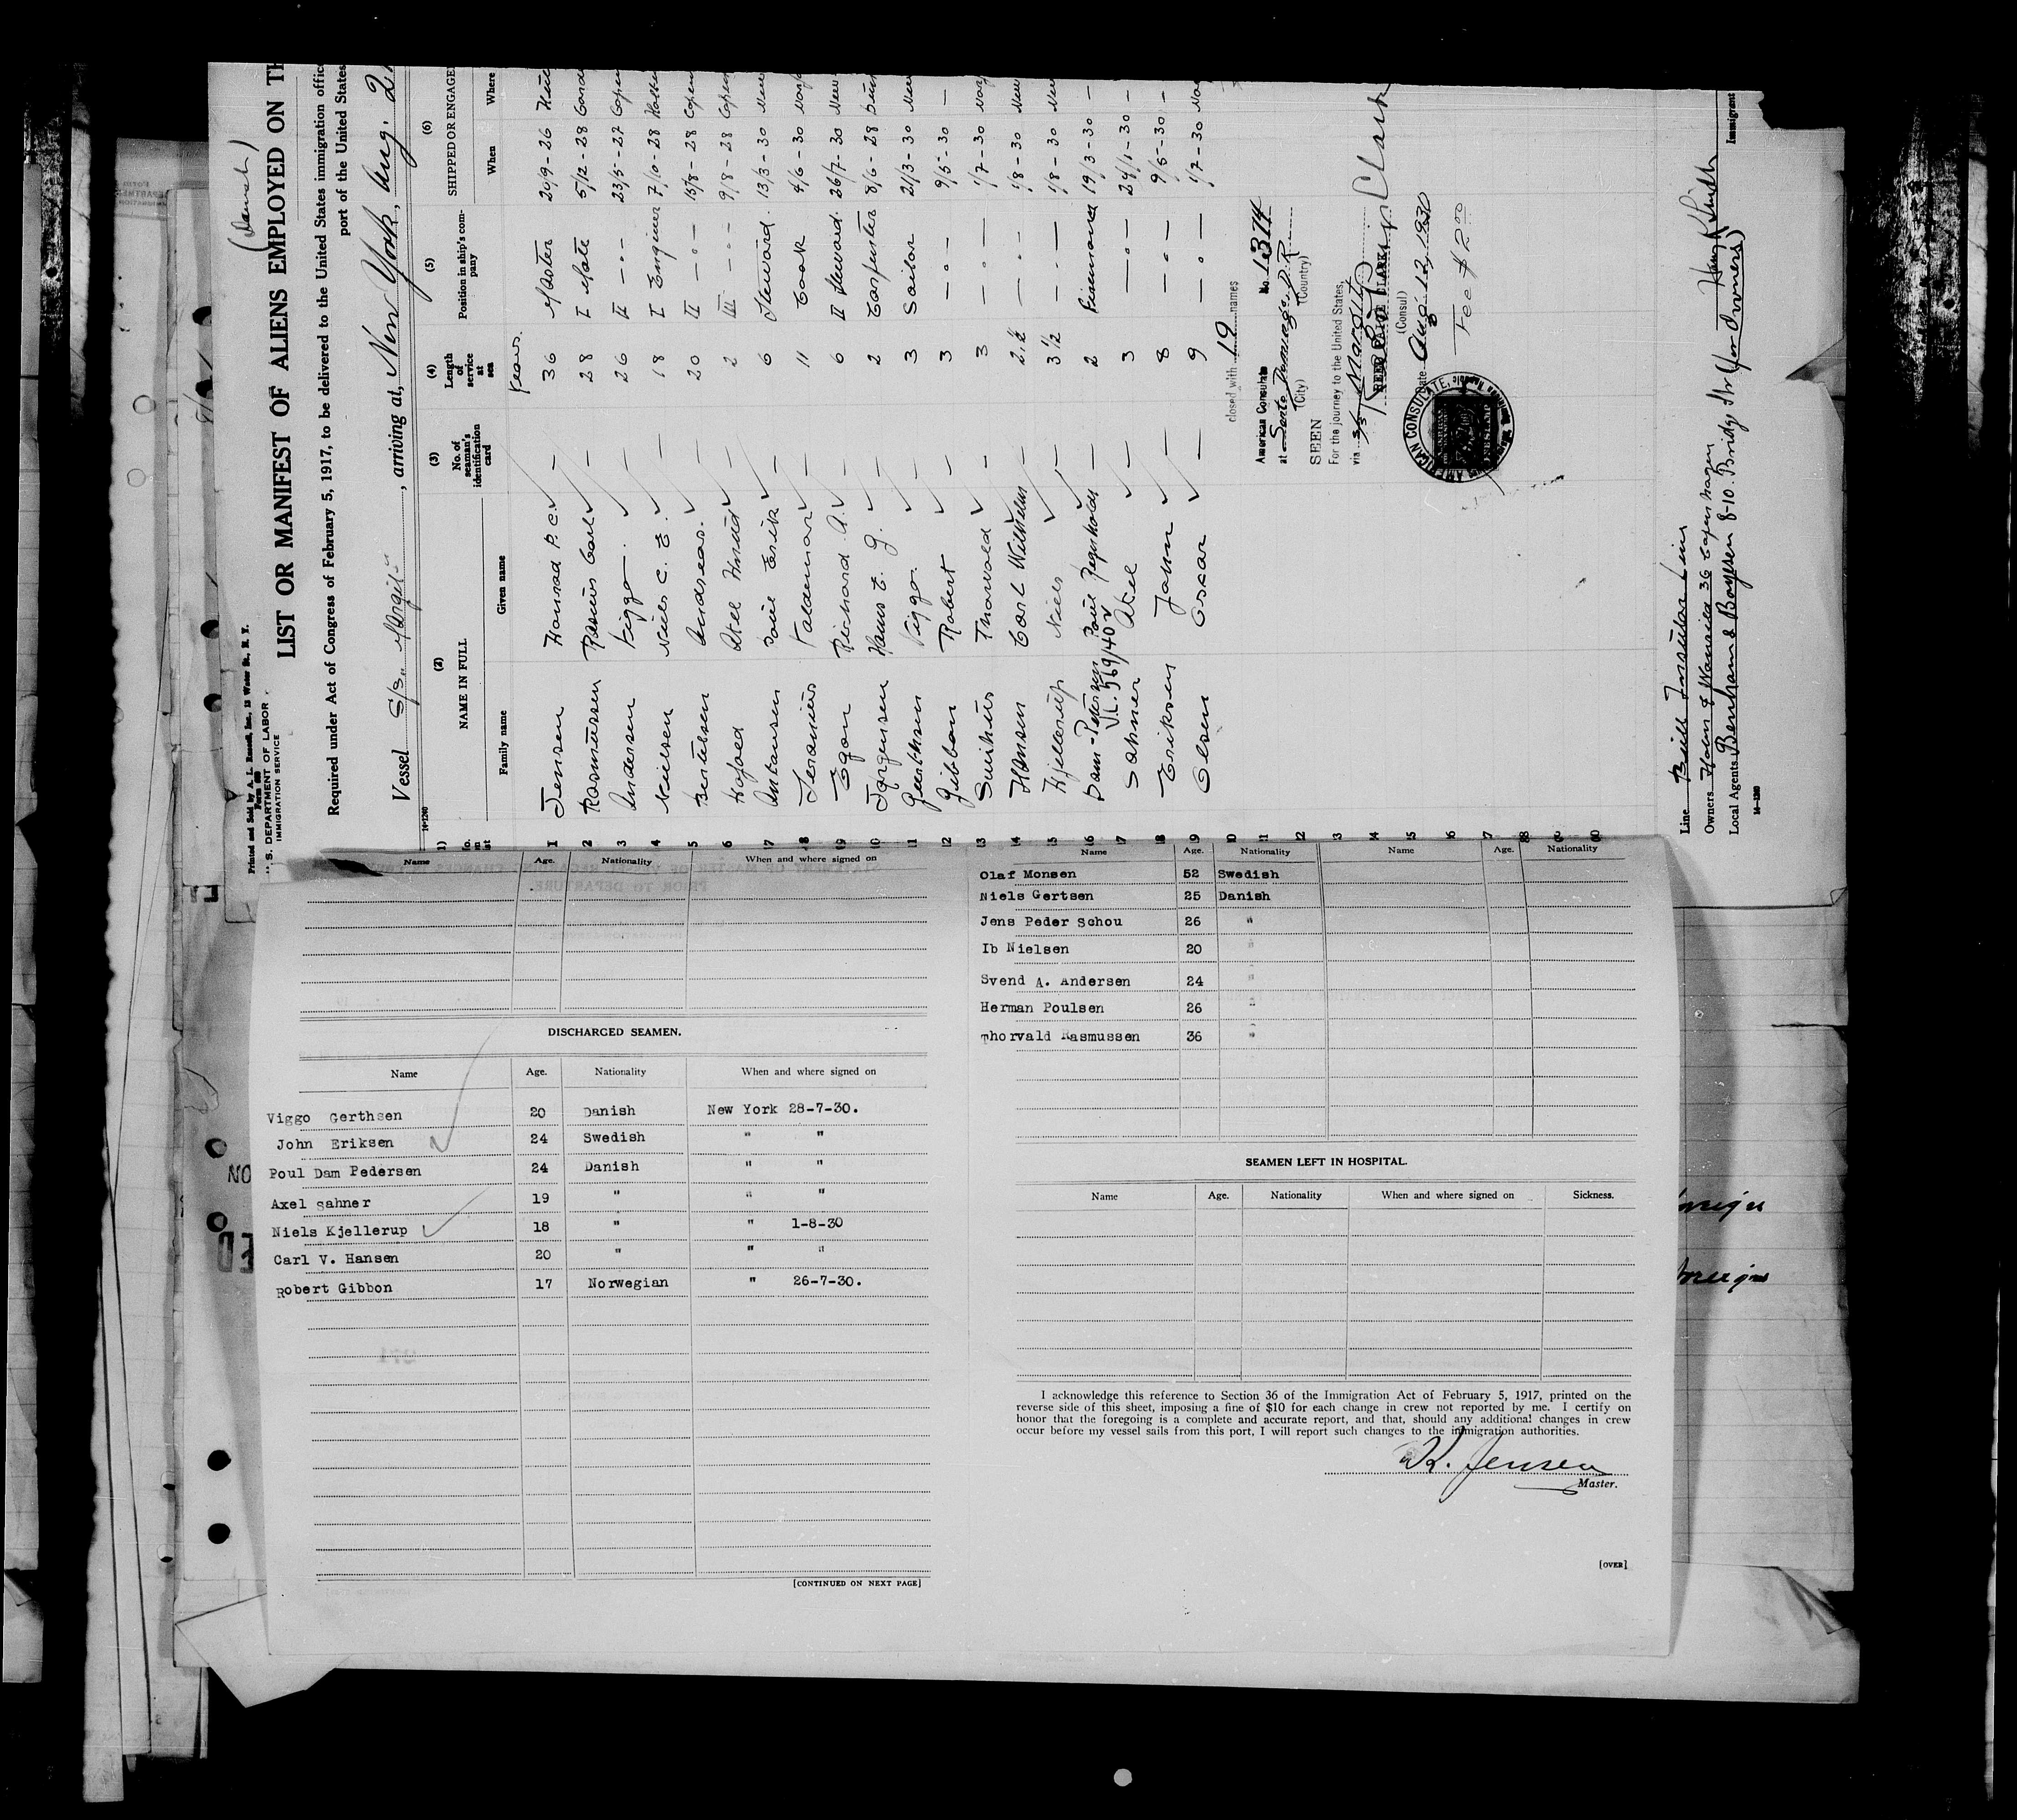 (Danish)
Printed and Sold by A. L. Russell, Inc., 13 Water St., N. Y.
S. DEPARTMENT OF LABOR
IMMIGRATION SERVICE
LIST OR MANIFEST OF ALIENS EMPLOYED ON TH
Required under Act of Congress of February 5, 1917, to be delivered to the United States immigration offic
port of the United States
Vessel S/S. , arriving at, New York, Aug. 21
(2) (3) (4) (5) (6)
NAME IN FULL No. of seaman's identification card Length of service at sea Position in ship's company SHIPPED OR ENGAGE
Family name Given name When Where
Years.
1 Jensen Konrad P. C. — 36 Master 20/9-26
2 Rasmussen Rasmus Carl — 28 I Mate 5/12-28
3 Andersen Viggo — 26 II —"— 23/5-27 Copen
4 Nielsen Niels C. E. — 18 I Engineer 7/10-28
5 Bertelsen Andreas. — 20 II —"— 15/8-28 Copen
6 Kofoed Axel Hmid — 2 III —"— 9/8-28 Copen
7 Antonsen Poul Erik — 6 Steward. 13/3-30 New
8 Valdemar — 11 Cook 4/6-30
9 Egon Richard A. — 6 II Steward. 26/7-30 New
10 Jørgensen Hans E. J. — 2 Carpenter 8/6-28
11 Gerthsen Viggo. 3 Sailor 21/3-30 New
12 Gibbon Robert — 3 —"— 9/5-30 —
13 Thorvald — 3 —"— 1/7-30
14 Hansen Carl Wilhelm — 2 ½ —"— 1/8-30 New
15 Kjellerup Niels — 3 ½ —"— 1/8-30 New
16 Dam-Petersen Poul — 2 Fireman 19/3-30 —
V.L. 569/40
17 Sahner Axel — 3 —"— 24/1-30 —
18 Eriksen John — 8 —"— 9/5-30 —
19 Olsen Oscar — 9 —"— 1/7-30
closed with 19 names
American Consulate No. 1374
at Santo Domingo, D.R.
(City) (Country)
SEEN
For the journey to the United States,
via S/S
REED PAIGE CLARK
(Consul)
Date Aug. 12, 1930
Fee $2.00
AMERICAN CONSULATE,
Line Bull Insular Line
Owners Holm & Wonsild 36 Copenhagen
Local Agents Benham & Boyesen 8-10. Bridge Str. (for Owners)
Immigrant
14—1240
Name Age. Nationality When and where signed on
DISCHARGED SEAMEN.
Name Age. Nationality When and where signed on
Viggo Gerthsen 20 Danish New York 28-7-30.
John Eriksen 24 Swedish " "
Poul Dam Pedersen 24 Danish " "
Axel Sahner 19 " " "
Niels Kjellerup 18 " " 1-8-30
Carl V. Hansen 20 " " "
Robert Gibbon 17 Norwegian " 26-7-30.
[CONTINUED ON NEXT PAGE]
Name Age. Nationality Name Age. Nationality
Olaf Monsen 52 Swedish
Niels Gertsen 25 Danish
Jens Peder Schou 26 "
Ib Nielsen 20 "
Svend A. Andersen 24 "
Herman Poulsen 26 "
Thorvald Rasmussen 36 "
SEAMEN LEFT IN HOSPITAL.
Name Age. Nationality When and where signed on Sickness.
I acknowledge this reference to Section 36 of the Immigration Act of February 5, 1917, printed on the
reverse side of this sheet, imposing a fine of $10 for each change in crew not reported by me. I certify on
honor that the foregoing is a complete and accurate report, and that, should any additional changes in crew
occur before my vessel sails from this port, I will report such changes to the immigration authorities.
K. Jensen
Master.
[OVER]